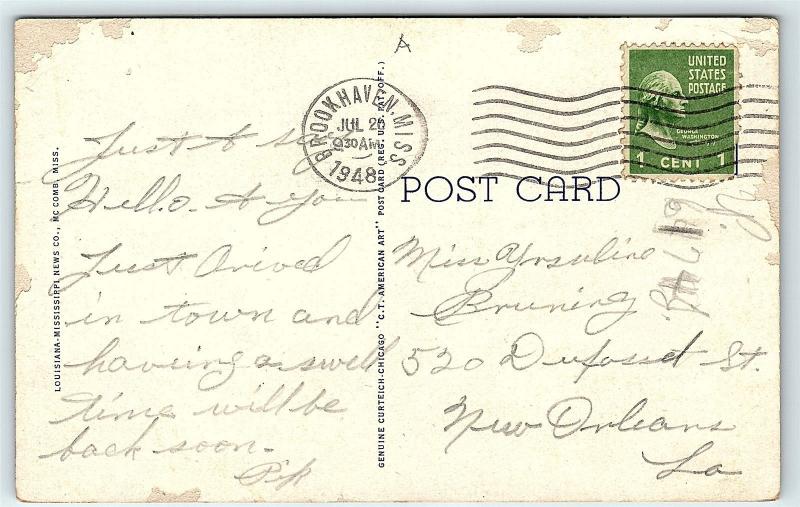 LOUISIANA-MISSISSIPPI NEWS CO., MC COMB, MISS.
Just to say
Hello. to you
Just Arived
in town and
having a swell
time will be
back soon.
GENUINE CURTEICH-CHICAGO "C.T. AMERICAN ART" POST CARD (REG. U.S. PAT. OFF.)
A
BROOKHAVEN, MISS
JUL 26
9 30 AM
1948
UNITED
STATES
POSTAGE
GEORGE
WASHINGTON
1 CENT 1
POST CARD
Miss Ursuline
Bruning
520 Dufossat St.
New Orleans
La